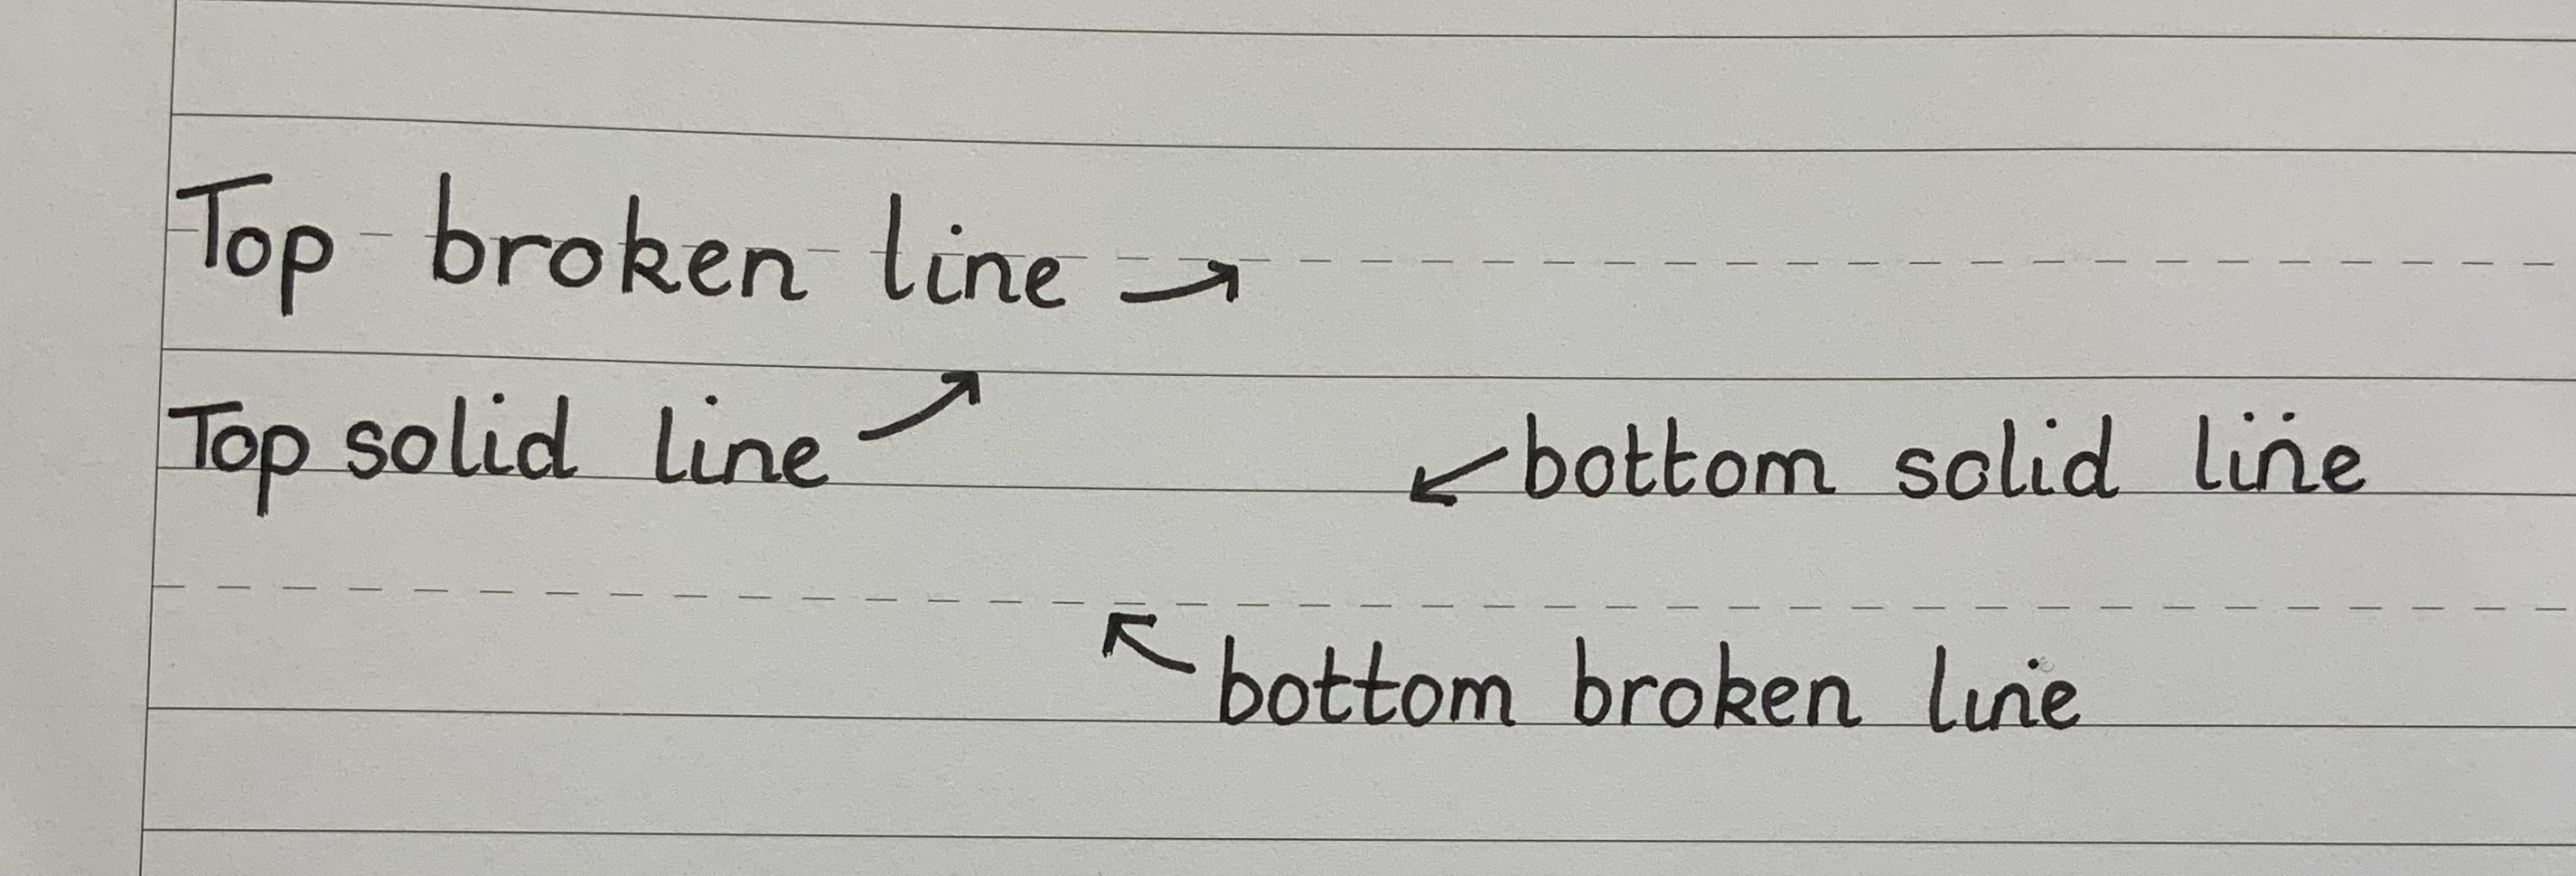 Top broken line →
Top solid line ↗
↙ bottom solid line
↖ bottom broken line